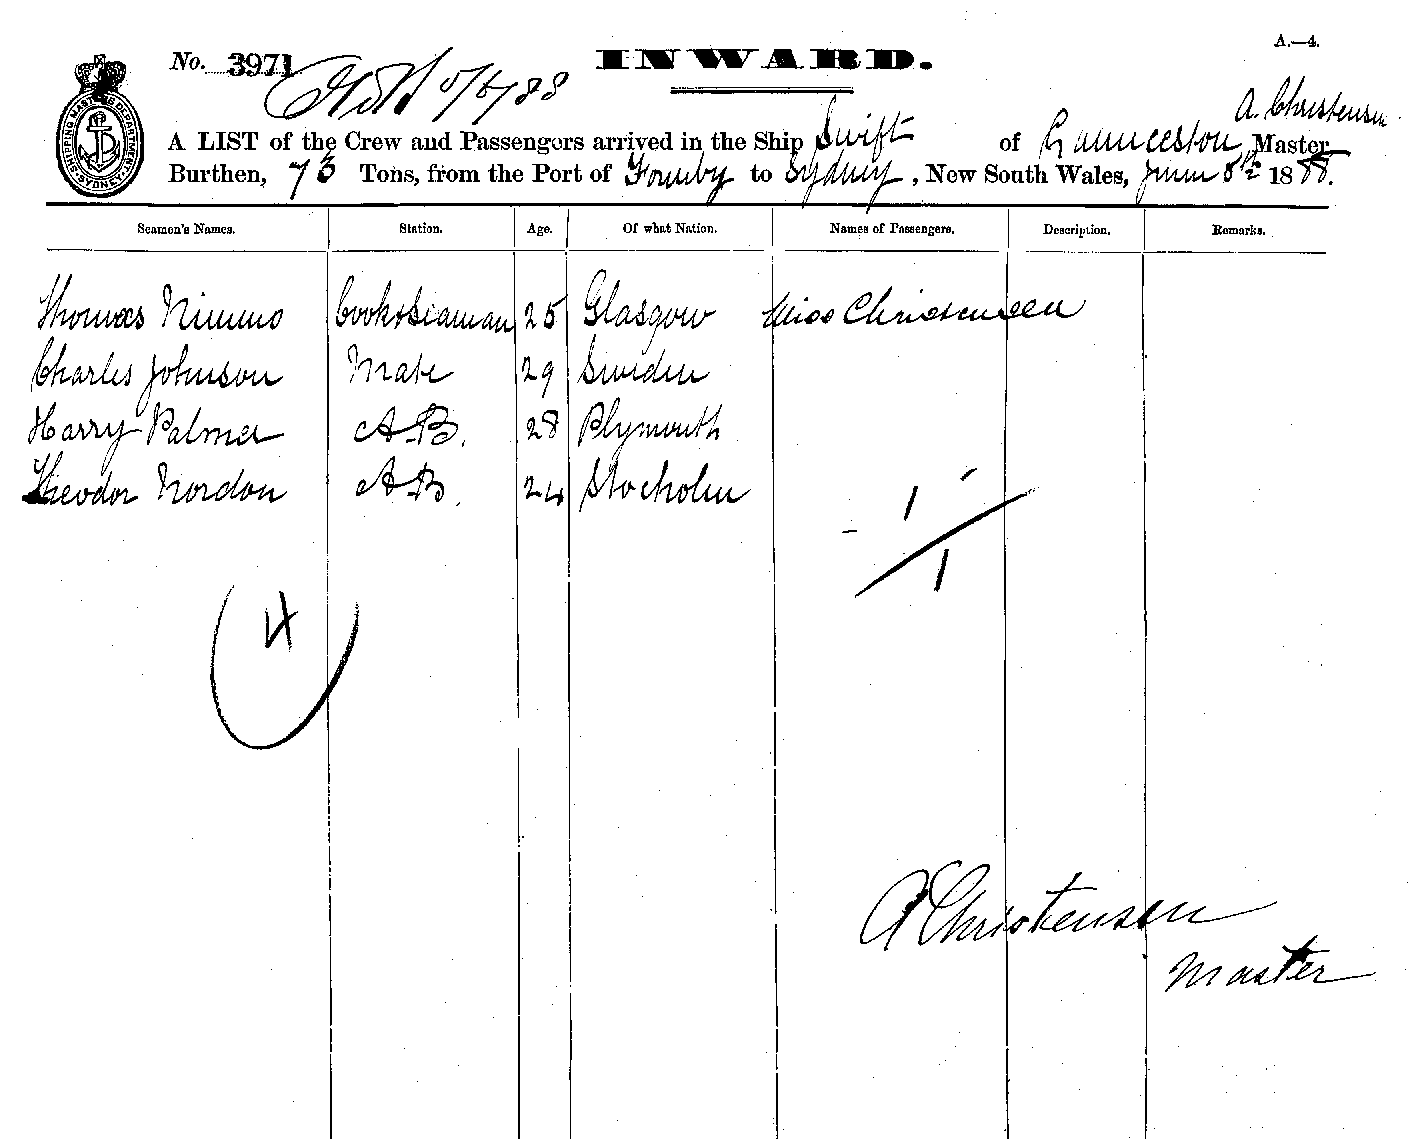 A.—4.
No. 3971
INWARD.
5/6/88
A. Christensen
A LIST of the Crew and Passengers arrived in the Ship Swift of Launceston, Master
Burthen, 73 Tons, from the Port of Formby to Sydney, New South Wales, June 5th 1888.
SHIPPING MASTERS DEPARTMENT SYDNEY
Seamen's Names. Station. Age. Of what Nation. Names of Passengers. Description. Remarks.
Thomas Nimmo Cook & Seaman 25 Glasgow Miss Christensen
Charles Johnson Mate 29 Sweden
Harry Palmer A.B. 28 Plymouth
Theodor Nordon A.B. 24 Stocholm
1
1
4
A Christensen
Master